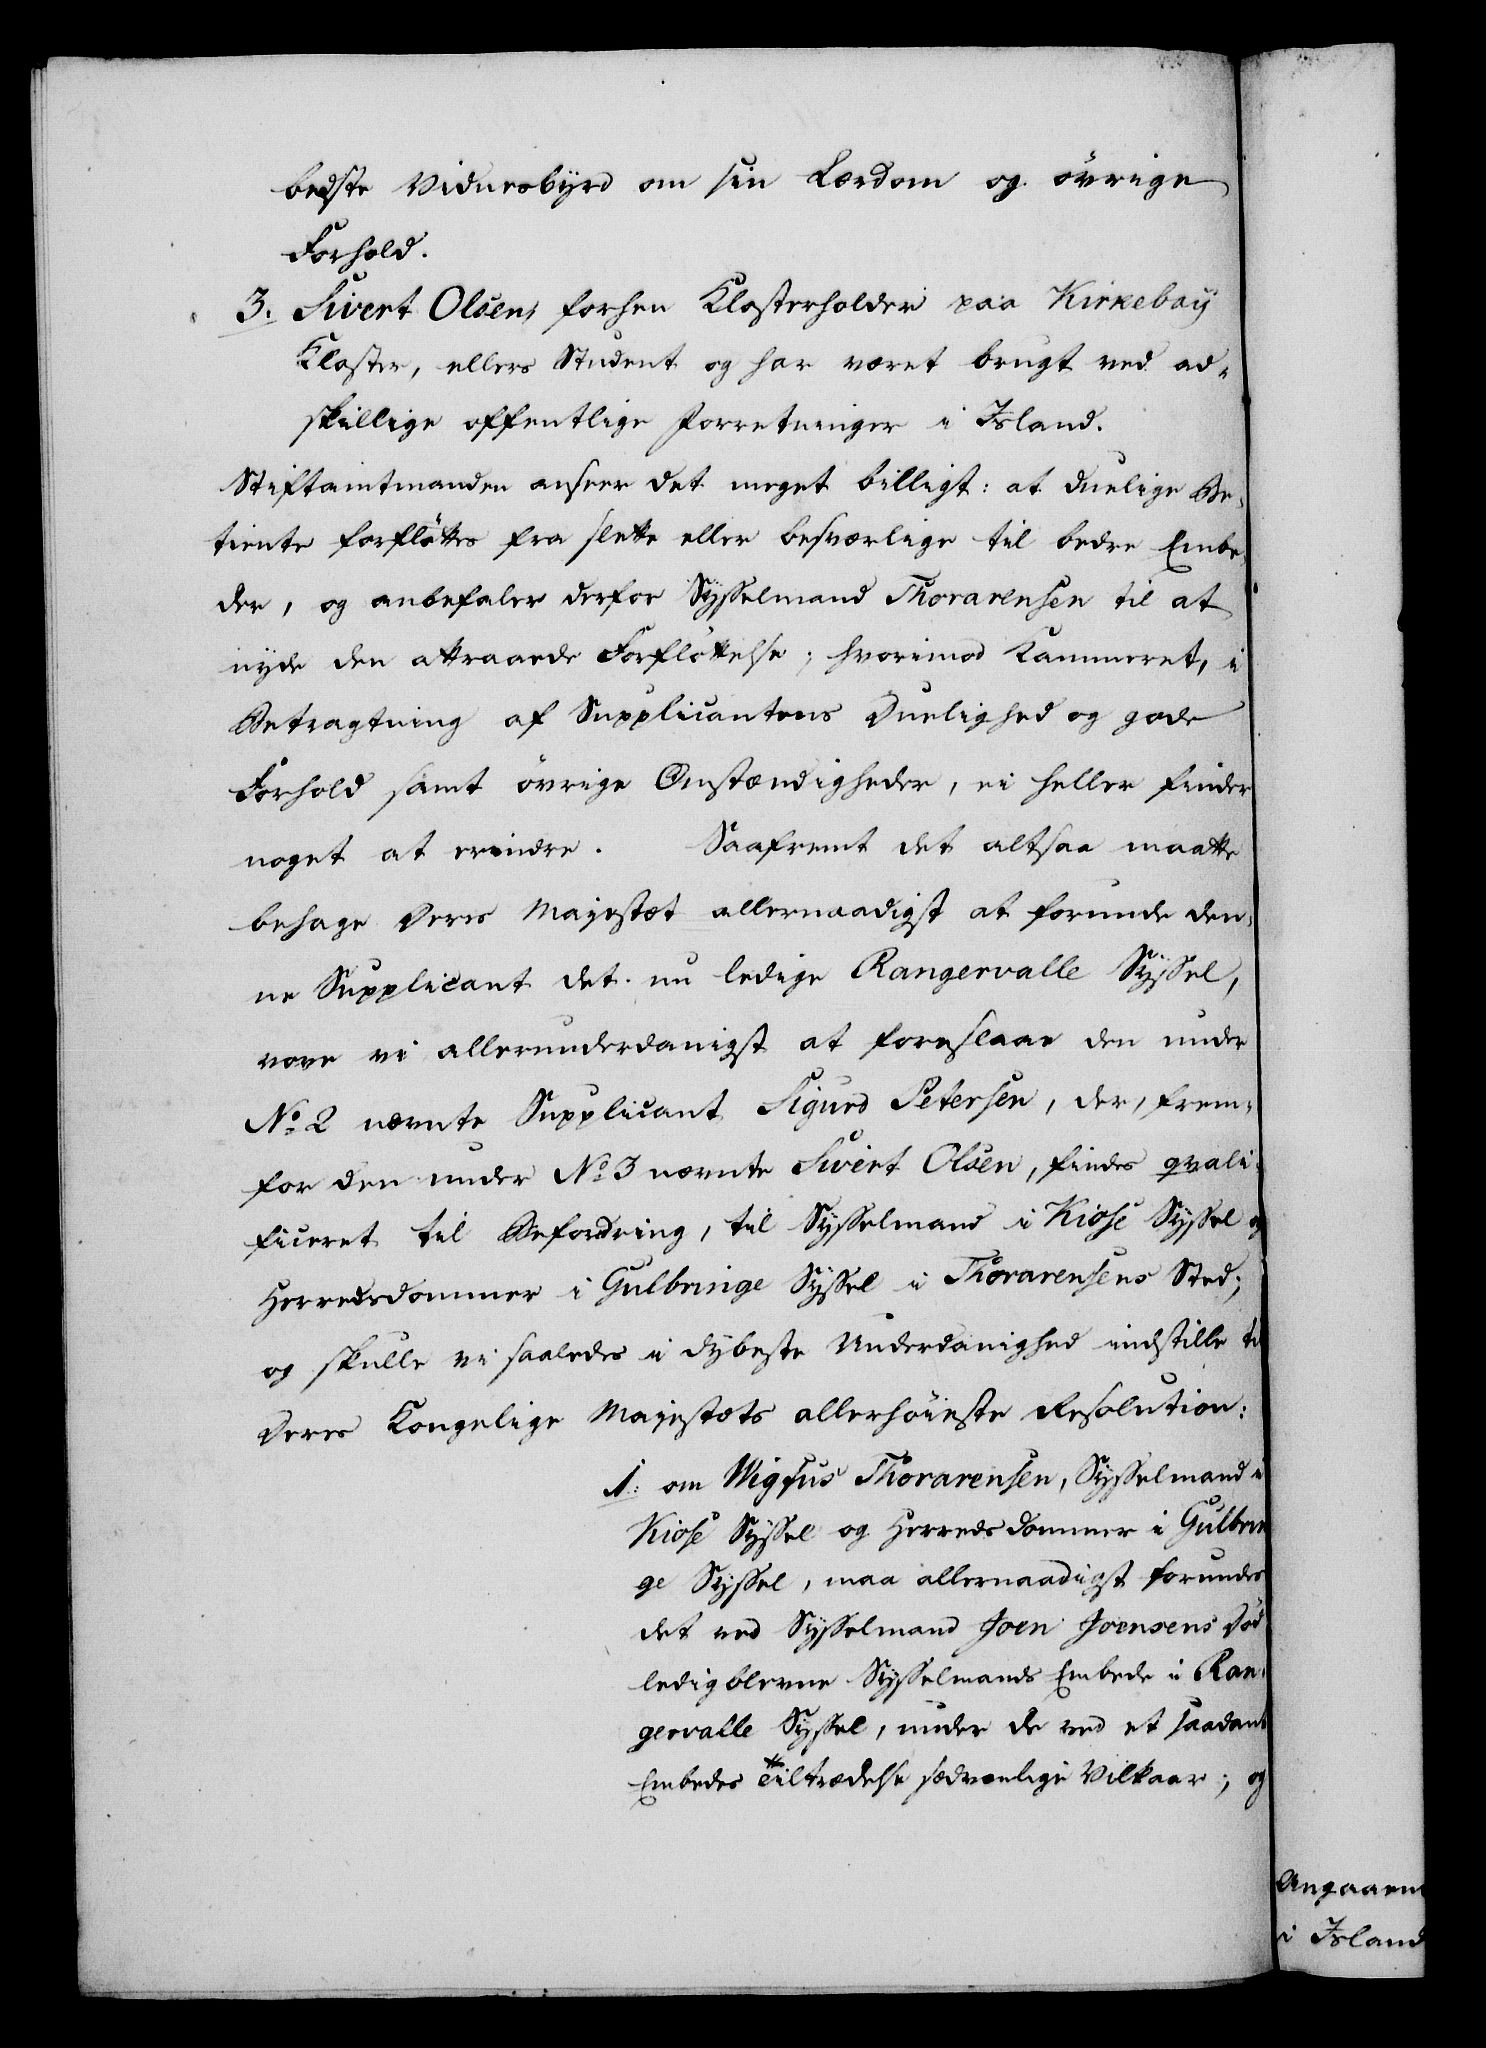 bedste Vidnesbyrd om sin Lærdom og övrige
Forhold.
3. Sivert Olsen, forhen Klosterholder paa Kirkebay
Kloster, ellers Student og har været brugt ved ad-
skillige offentlige Forretninger i Island.
Stiftamtmanden anseer det meget billigt: at duelige Be-
tiente forflöttes fra slette eller besværlige til bedre Embe-
der, og anbefaler derfor Sysselmand Thorarensen til at
nyde den attraaede Forflöttelse; hvorimod Kammeret, i
Betragtning af Supplicantens Duelighed og gode
Forhold samt övrige Omstændigheder, ei heller finder
noget at erindre. Saafremt det altsaa maatte
behage Deres Majestæt allernaadigst at forunde den-
ne Supplicant det nu ledige Rangervalle Syssel,
vove vi allerunderdanigst at foreslaae den under
No 2 nævnte Supplicant Sigurd Petersen, der, frem-
for den under No 3 nævnte Sivert Olsen, findes qvali-
ficeret til Befordring, til Sysselmand i Kiose Syssel og
Herredsdommer i Gulbringe Syssel i Thorarensens Sted;
og skulle vi saaledes i dybeste Underdanighed indstille til
Deres Kongelige Majestæts allerhöieste Resolution:
1: om Wigfus Thorarensen, Sysselmand i
Kiose Syssel og Herredsdommer i Gulbrin
ge Syssel, maa allernaadigst forundes
det ved Sysselmand Joen Joensens Död
ledigblevne Sysselmands Embede i Ran-
gervalle Syssel, under de ved et saadant
Embedes Tiltrædelse sædvanlige Vilkaar; og
Angaaen
i Island